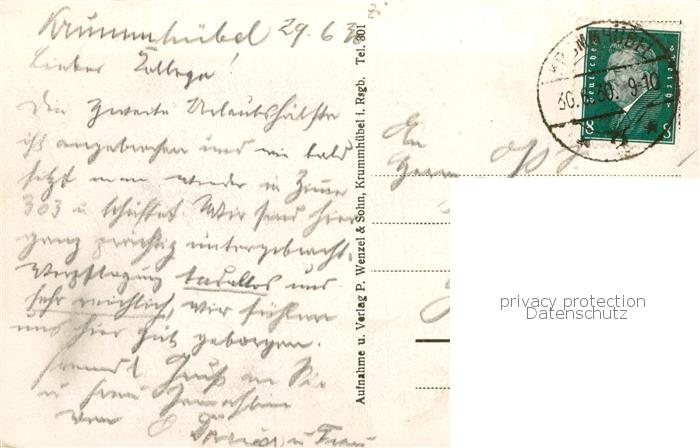 Krummhübel 29.6.30
Lieber Kollege!
Die zweite Urlaubshälfte
ist angebrochen und wie bald
sitzt man wieder in Zimmer
303 u. schuftet. Wir sind hier
ganz prächtig untergebracht.
Verpflegung tadellos und
sehr reichlich, wir fühlen
uns hier gut geborgen.
Freundl. Gruß an Sie
u. Frau Gemahlin
von u. Frau
Aufnahme u. Verlag P. Wenzel & Sohn, Krummhübel i. Rsgb. Tel. 301
KRUMMHÜBEL
30. 6. 30. 9-10
Deutsches Reich
8 8
An
Herrn
privacy protection
Datenschutz